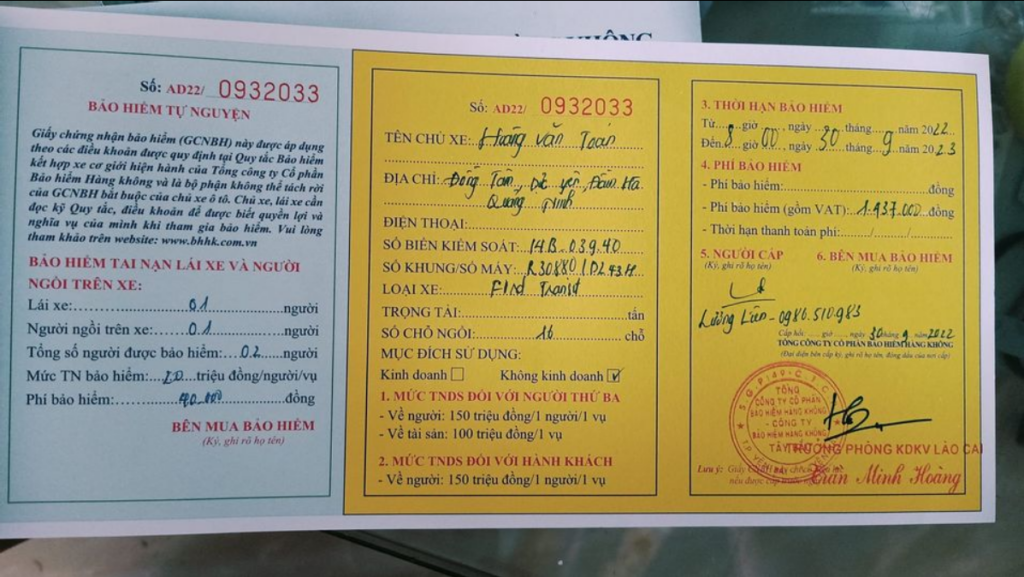 HÀNG KHÔNG
Số: AD22/ 0932033
BẢO HIỂM TỰ NGUYỆN
Giấy chứng nhận bảo hiểm (GCNBH) này được áp dụng
theo các điều khoản được quy định tại Quy tắc Bảo hiểm
kết hợp xe cơ giới hiện hành của Tổng công ty Cổ phần
Bảo hiểm Hàng không và là bộ phận không thể tách rời
của GCNBH bắt buộc của chủ xe ô tô. Chủ xe, lái xe cần
đọc kỹ Quy tắc, điều khoản để được biết quyền lợi và
nghĩa vụ của mình khi tham gia bảo hiểm. Vui lòng
tham khảo trên website: www.bhhk.com.vn
BẢO HIỂM TAI NẠN LÁI XE VÀ NGƯỜI
NGỒI TRÊN XE:
Lái xe: 01 người
Người ngồi trên xe: 01 người
Tổng số người được bảo hiểm: 02 người
Mức TN bảo hiểm: 10 triệu đồng/người/vụ
Phí bảo hiểm: đồng
BÊN MUA BẢO HIỂM
(Ký, ghi rõ họ tên)
Số: AD22/ 0932033
TÊN CHỦ XE: Hoàng Văn Toán
ĐỊA CHỈ: Đồng Tâm, Dực Yên, Đầm Hà
Quảng Ninh
ĐIỆN THOẠI:
SỐ BIỂN KIỂM SOÁT: 14B-039.40
SỐ KHUNG/SỐ MÁY: R30880/
LOẠI XE: Ford Transit
TRỌNG TẢI: tấn
SỐ CHỖ NGỒI: 16 chỗ
MỤC ĐÍCH SỬ DỤNG:
Kinh doanh Không kinh doanh
1. MỨC TNDS ĐỐI VỚI NGƯỜI THỨ BA
- Về người: 150 triệu đồng/1 người/1 vụ
- Về tài sản: 100 triệu đồng/1 vụ
2. MỨC TNDS ĐỐI VỚI HÀNH KHÁCH
- Về người: 150 triệu đồng/1 người/1 vụ
3. THỜI HẠN BẢO HIỂM
Từ 8 giờ 00, ngày 30 tháng 9 năm 2022
Đến 8 giờ 00, ngày 30 tháng 9 năm 2023
4. PHÍ BẢO HIỂM
- Phí bảo hiểm: đồng
- Phí bảo hiểm (gồm VAT): 1.437.000 đồng
- Thời hạn thanh toán phí: / /
5. NGƯỜI CẤP 6. BÊN MUA BẢO HIỂM
(Ký, ghi rõ họ tên) (Ký, ghi rõ họ tên)
Lương - 0986.510.983
Cấp hồi giờ ngày 30 tháng 9 2022
TỔNG CÔNG TY CỔ PHẦN BẢO HIỂM HÀNG KHÔNG
(Đại diện bên cấp ký, ghi rõ họ tên, đóng dấu của nơi cấp)
TỔNG
CÔNG TY CỔ PHẦN
BẢO HIỂM HÀNG KHÔNG
- CÔNG TY
BẢO HIỂM HÀNG KHÔNG
TÂY
TRƯỞNG PHÒNG KDKV LÀO CAI
Lưu ý: Giấy
nếu được cấp
Trần Minh Hoàng